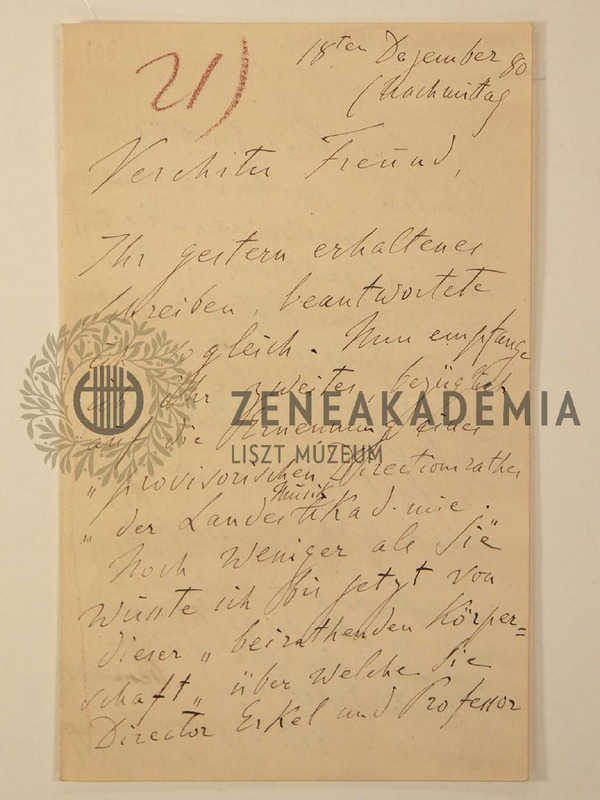 21)
18ten Dezember 80
(Nachmittag
Verehrter Freund,
Ihr gestern erhaltenes
Schreiben, beantwortete
ich sogleich. Nun empfange
ich Ihr zweites, bezüglich
auf die Ernennung eines
"provisorischen Directionsrathes
" der Landes Musik Akad-mie.
Noch weniger als Sie
wusste ich bis jetzt von
dieser „ beirathenden Körper=
schaft „ über welche Sie
Director Erkel und Professor
ZENEAKADÉMIA
LISZT MÚZEUM